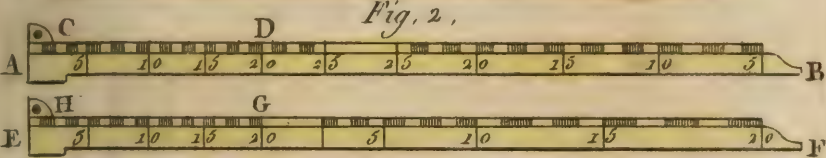 Fig. 2.
C D
A B
5 10 15 20 25 25 20 15 10 5
H G
E F
5 10 15 20 5 10 15 20